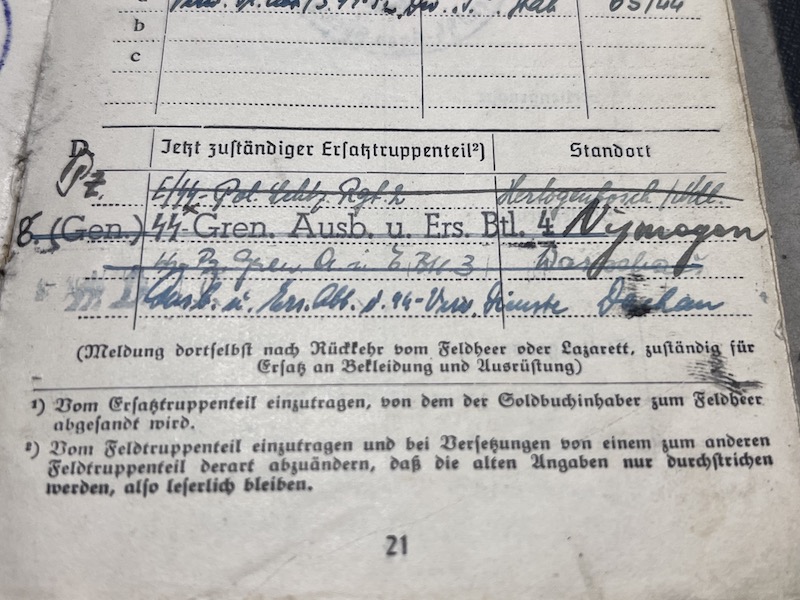 b
c
D Jetzt zuständiger Ersatztruppenteil²) Standort
Pz.
E/SS-Pol. Schtz. Rgt. 2 Hertogenbosch/Holl.
(Gen.) SS-Gren. Ausb. u. Ers. Btl. 4 Nijmegen
Pz. Gren. A. u. E. Btl. 3 Warschau
Ausb. u. Ers. Abt. d. SS-Verw. Dienste Dachau
(Meldung dortselbst nach Rückkehr vom Feldheer oder Lazarett, zuständig für
Ersatz an Bekleidung und Ausrüstung)
¹) Vom Ersatztruppenteil einzutragen, von dem der Soldbuchinhaber zum Feldheer
abgesandt wird.
²) Vom Feldtruppenteil einzutragen und bei Versetzungen von einem zum anderen
Feldtruppenteil derart abzuändern, daß die alten Angaben nur durchstrichen
werden, also leserlich bleiben.
21